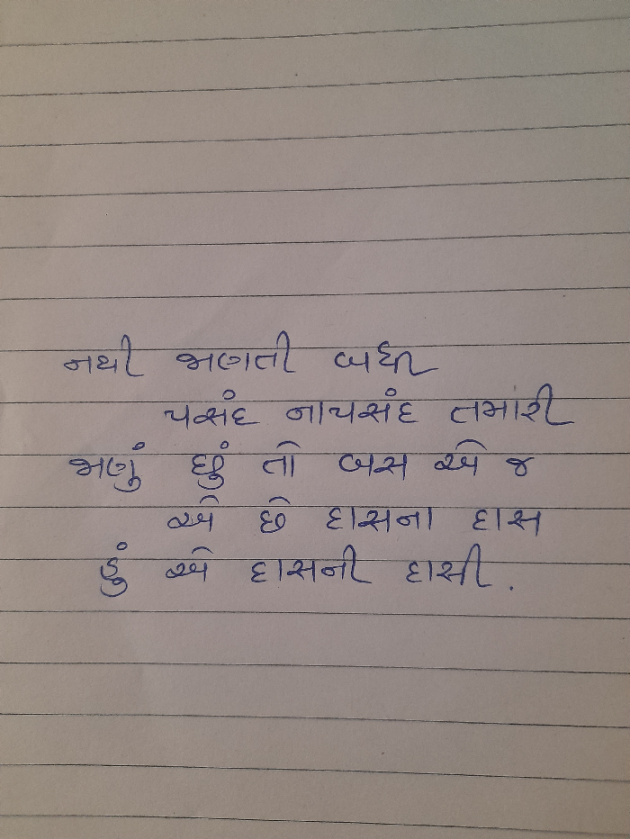 નથી જાણતી બધી
પસંદ નાપસંદ તમારી
જાણું છું તો બસ એ જ
એ છે દાસના દાસ
હું એ દાસની દાસી.